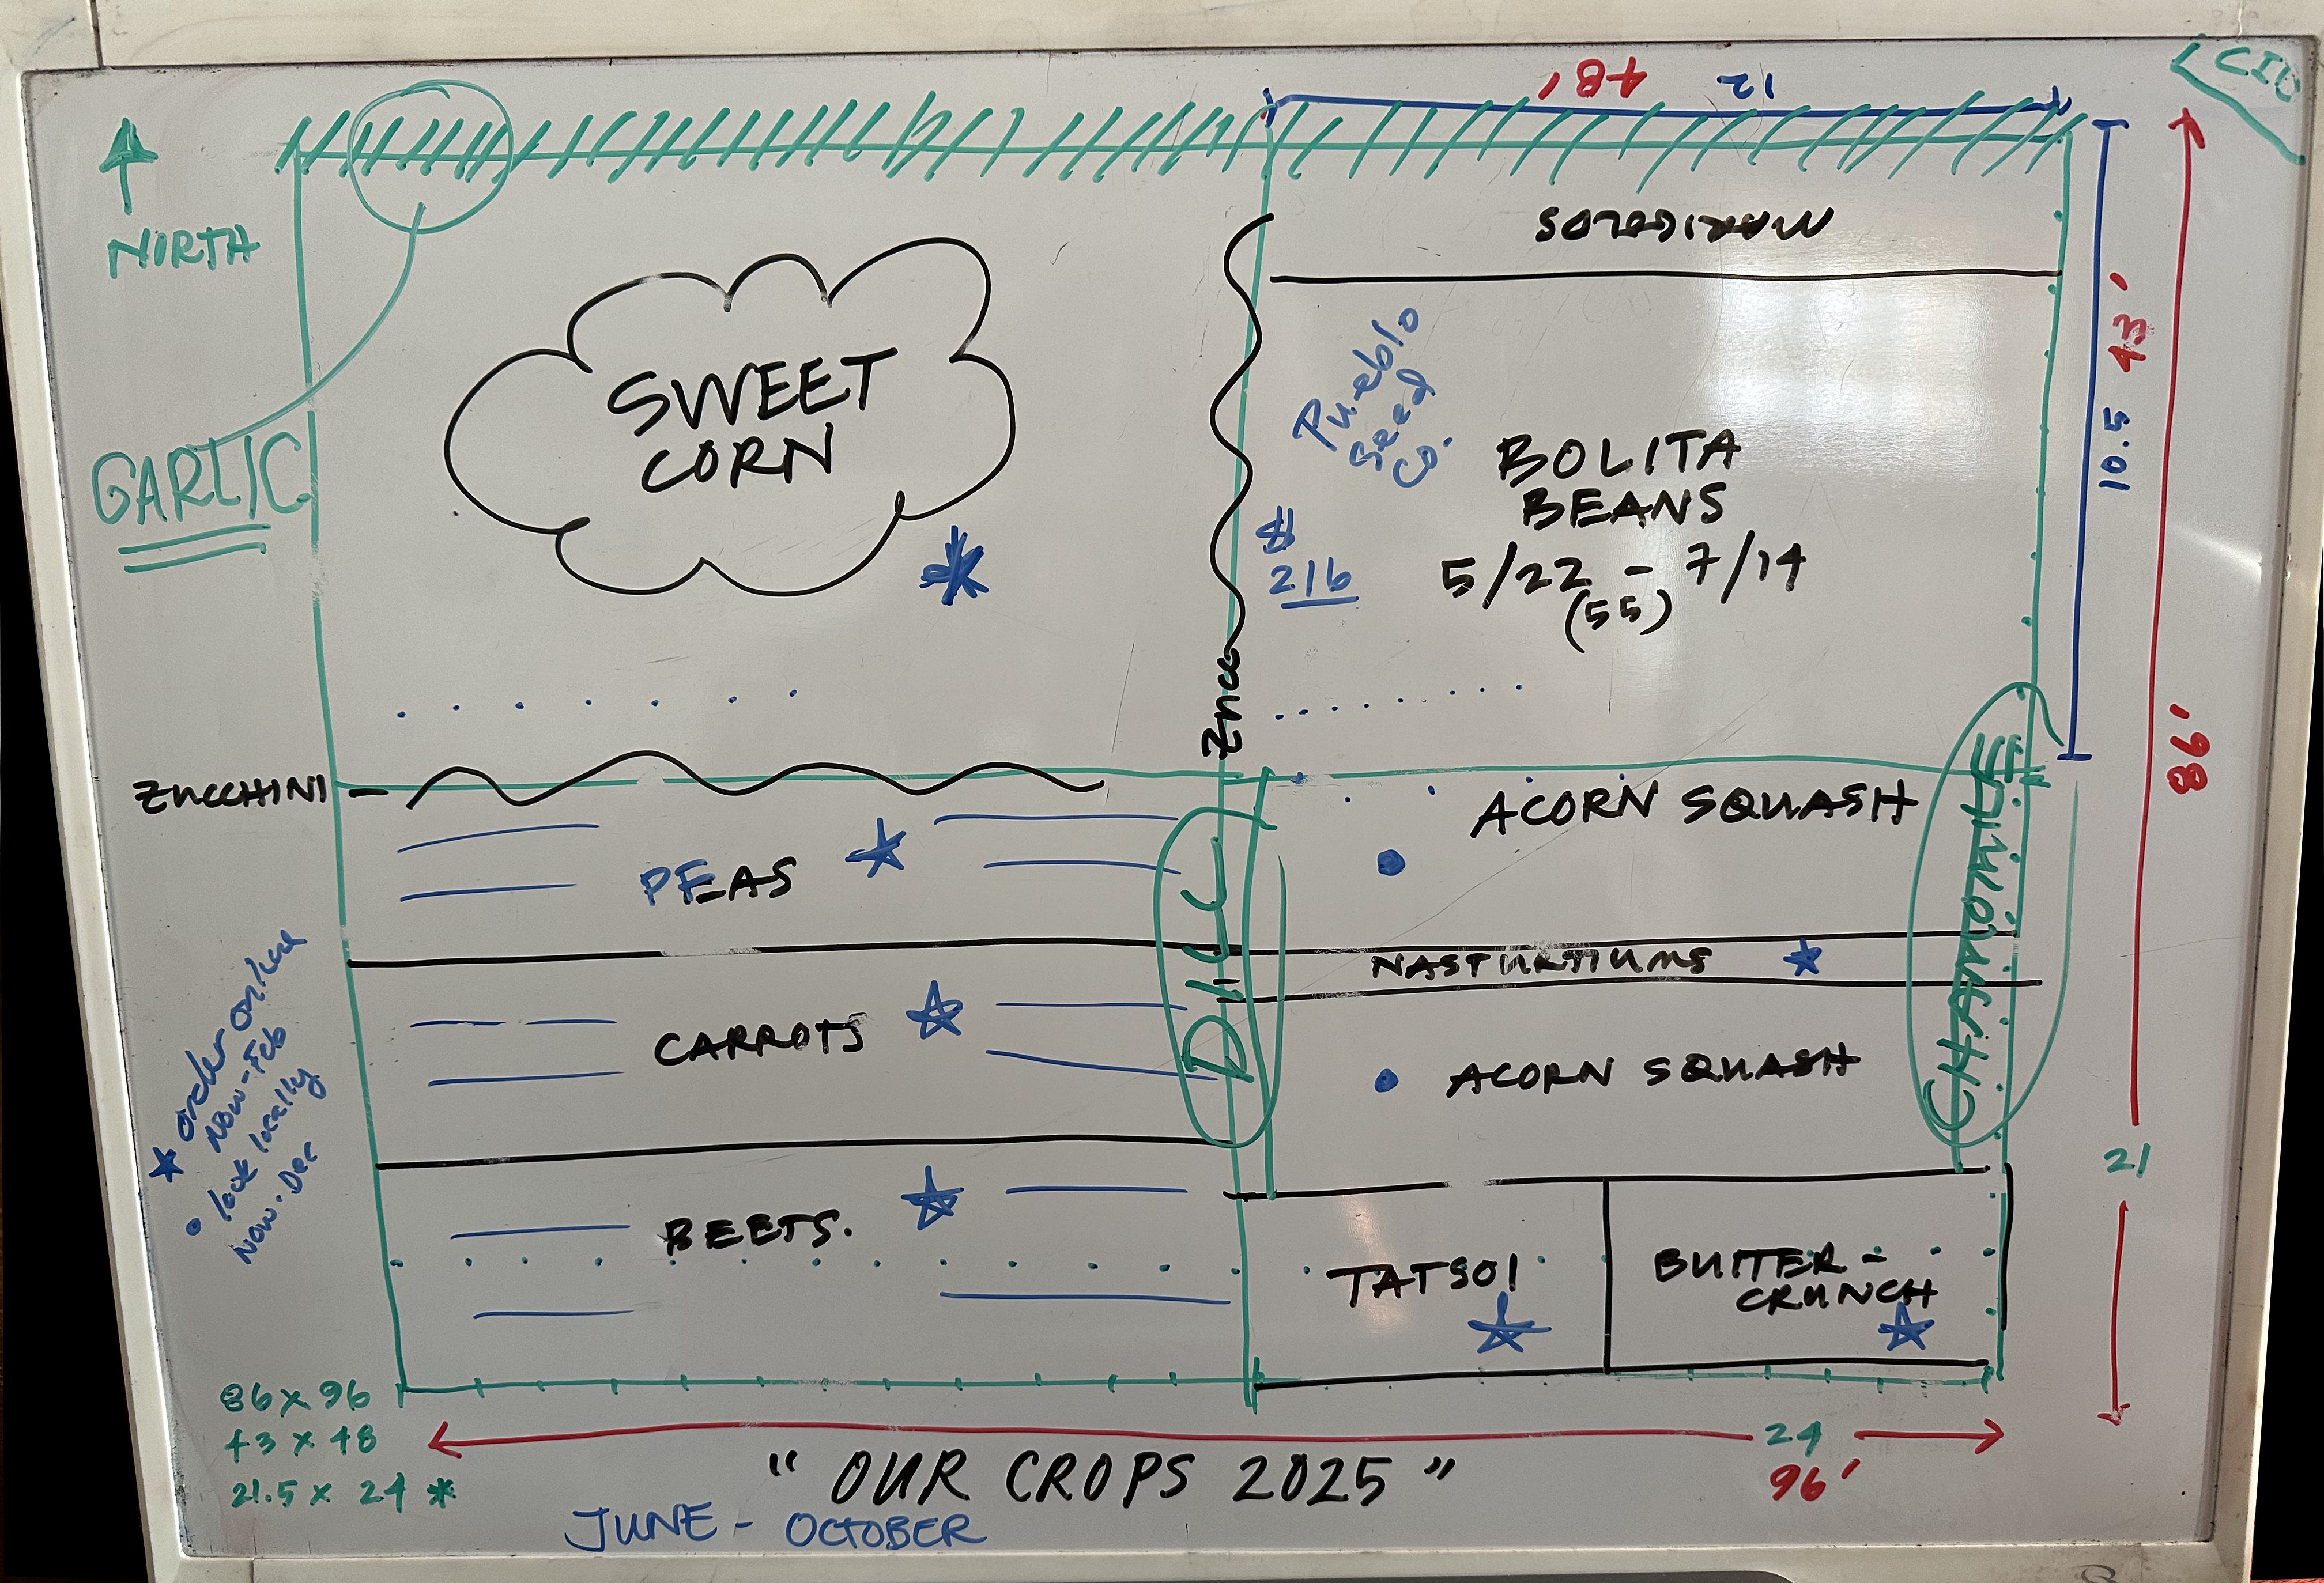 48' 12
CIC
NORTH
MARIGOLDS
SWEET
CORN
Pueblo
Seed
Co.
GARLIC
BOLITA
BEANS
5/22 - 7/14
(55)
$
21b
10.5 43'
86'
ZUCCHINI
ACORN SQUASH
PEAS
DILL
CHAMOMILE
NASTURTIUMS
CARROTS
ACORN SQUASH
★ order online
Nov-Feb
• look locally
Nov. Dec
21
BEETS.
TATSOI
BUTTER-
CRUNCH
86 x 96
43 x 48
21.5 x 24 *
24
96'
" OUR CROPS 2025 "
JUNE - OCTOBER